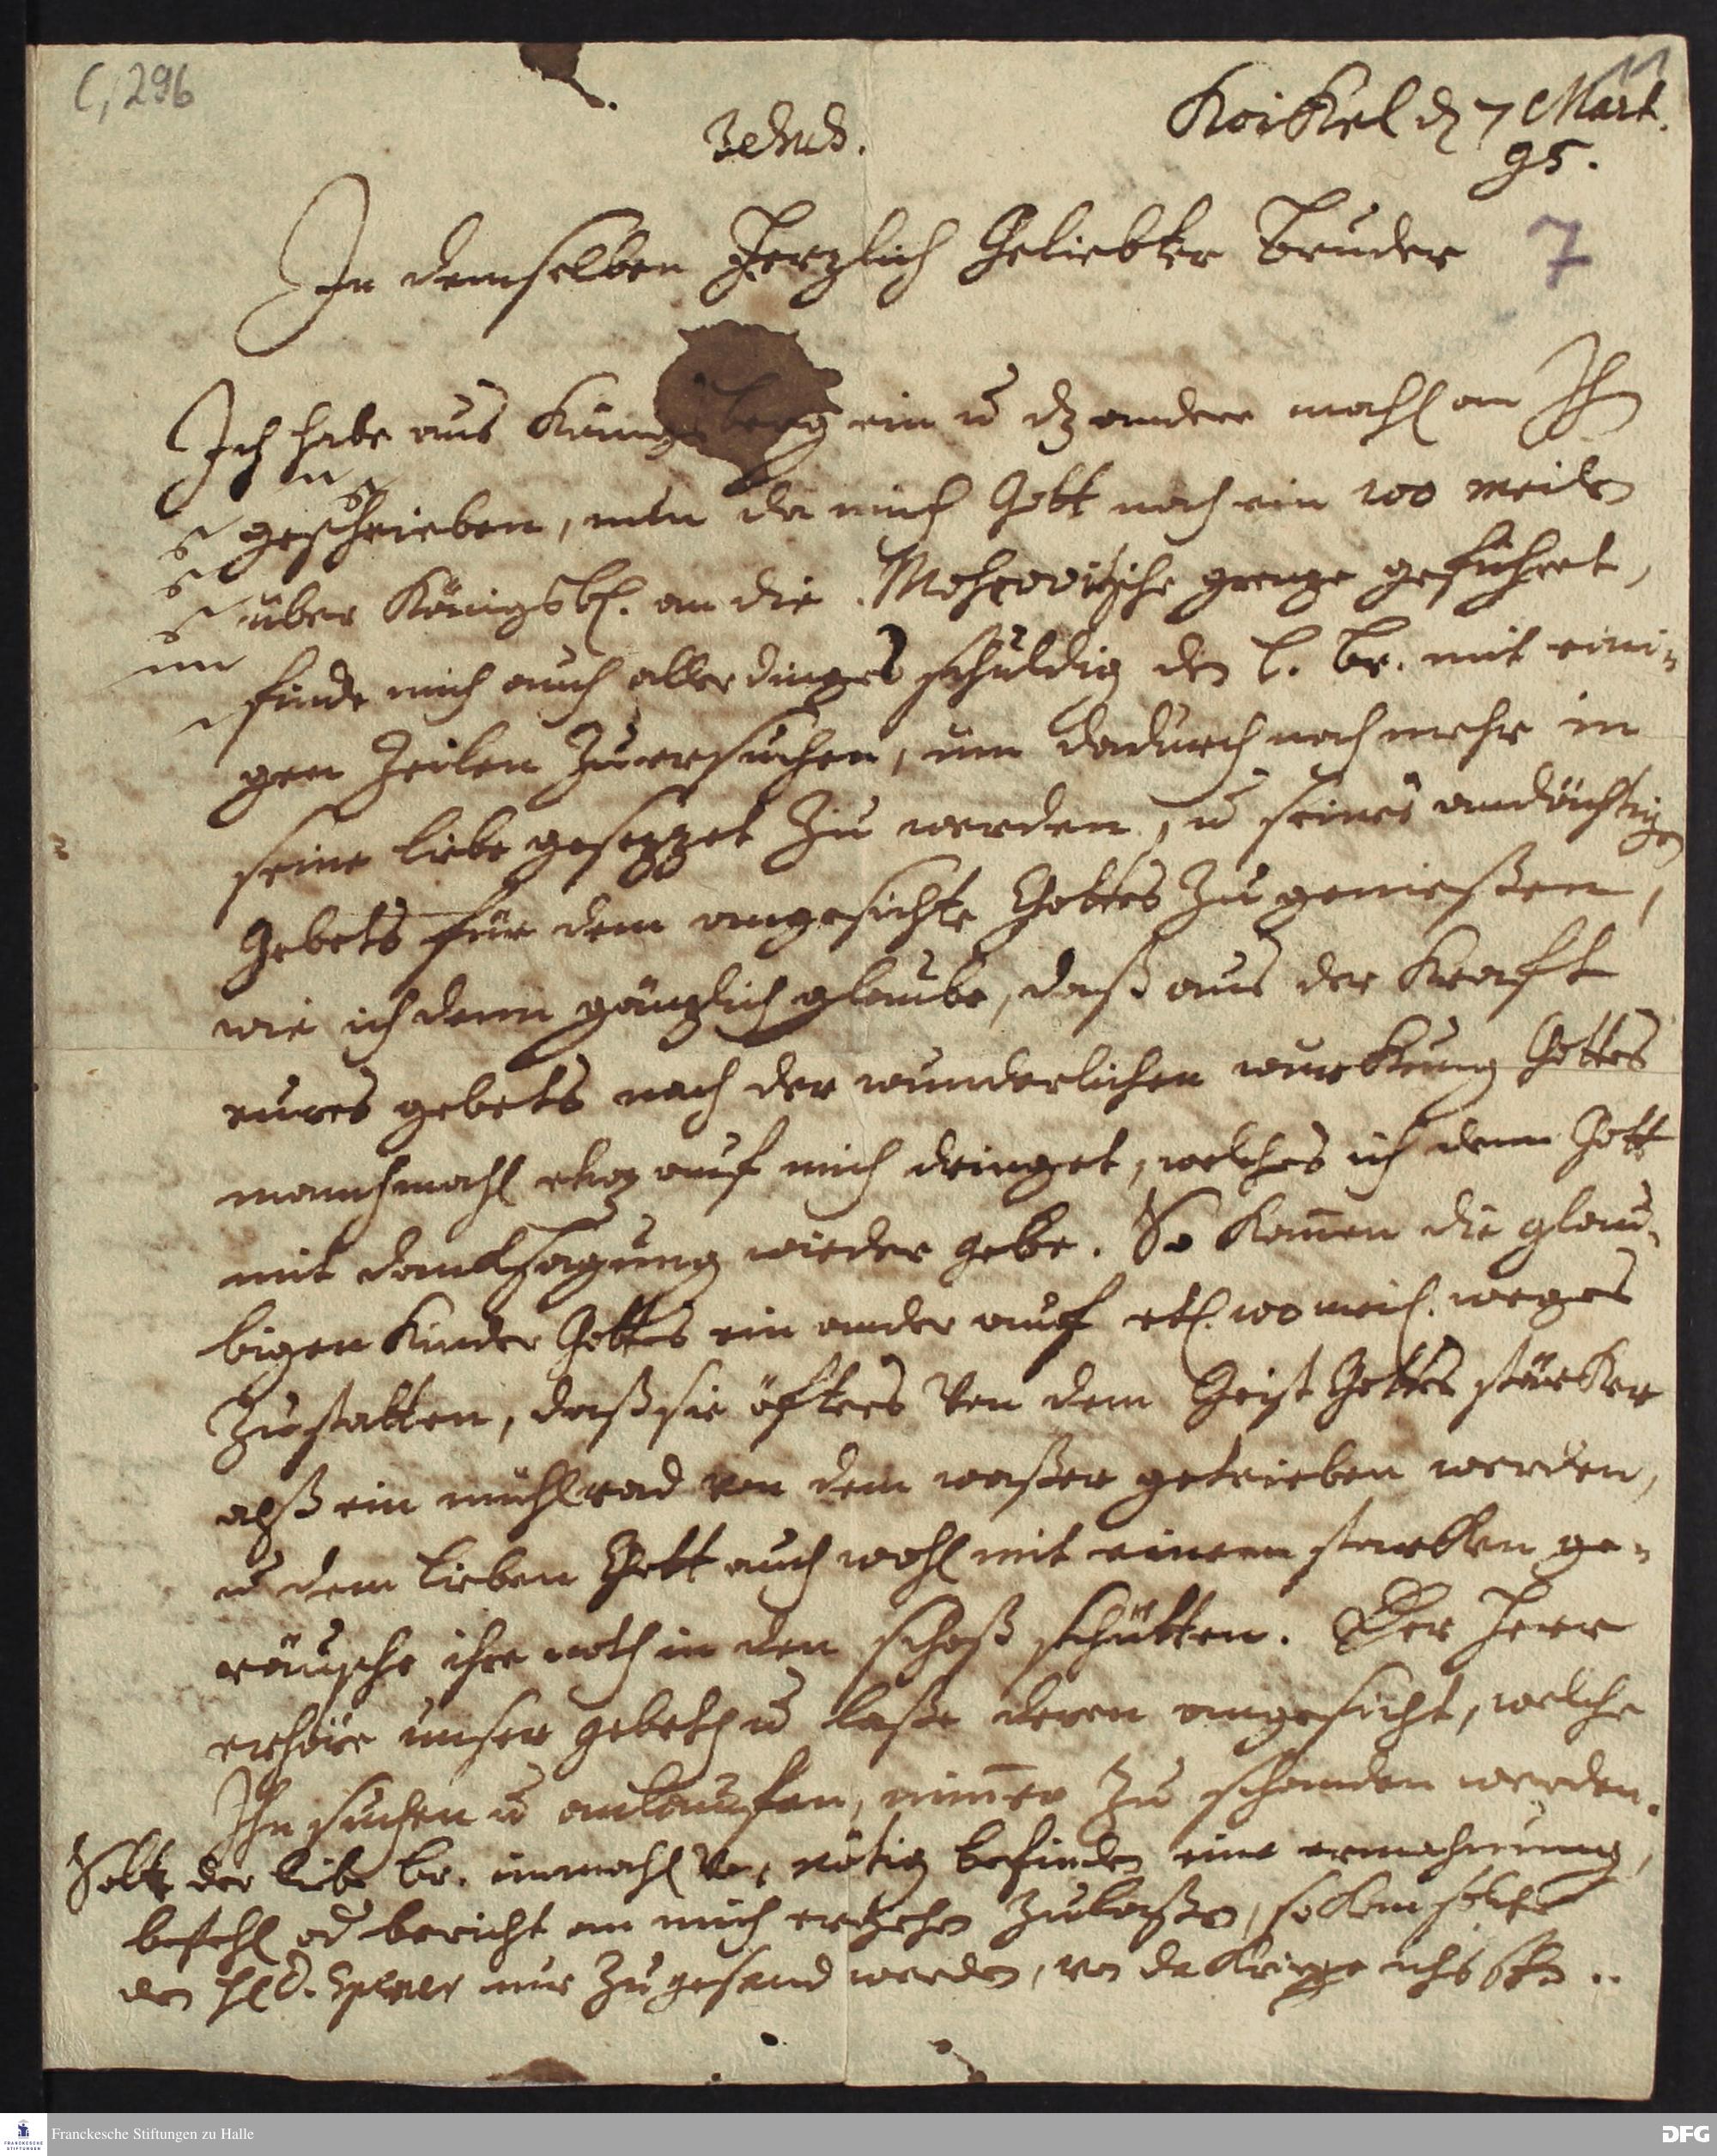 C, 296
11
Jesus.
Koikel d 7 Mart.
95.
7
In demselben Hertzlich Geliebter Bruder
Ich habe aus Königsberg ein u dz andere mahl an Ihn
geschrieben, nun da mich Gott noch ein 100 meilen
über Königsb. an die grenze geführet,
finde mich auch allerdinges schuldig den l. Br. mit eini-
gen Zeilen zu ersuchen, um dadurch noch mehr in
seine liebe gesezzet zu werden, u seines andächtigen
Gebets für dem angesichte Gottes zu genießen,
wie ich denn gäntzlich glaube, daß aus der Krafft
eures gebets nach der wunderlichen würkung Gottes
manchmahl etwz auf mich dringet, welches ich denn Gott
mit danksagung wieder gebe. So kom̅en die glau-
bigen Kinder Gottes ein ander auf etl. 100 meil. weges
zustatten, daß sie öfters von dem Geist Gottes stärker
alß ein mühlrad von dem waßer getrieben werden,
u dem lieben Gott auch wohl mit einem starken ge-
räusche ihre noth in den schoß schütten. Der Herr
erhöre unser gebeth u laße deren angesicht, welche
Ihn suchen u anlauffen, nim̅er zu schanden werden.
Solte der liebe br. nötig befinden eine ermahnung,
befehl od bericht an mich ergehen zulaßen, so kan solches
den H D. Spener nur zu gesand werden, von da kriege ichs
Franckesche Stiftungen zu Halle
FRANCKESCHE
STIFTUNGEN
DFG